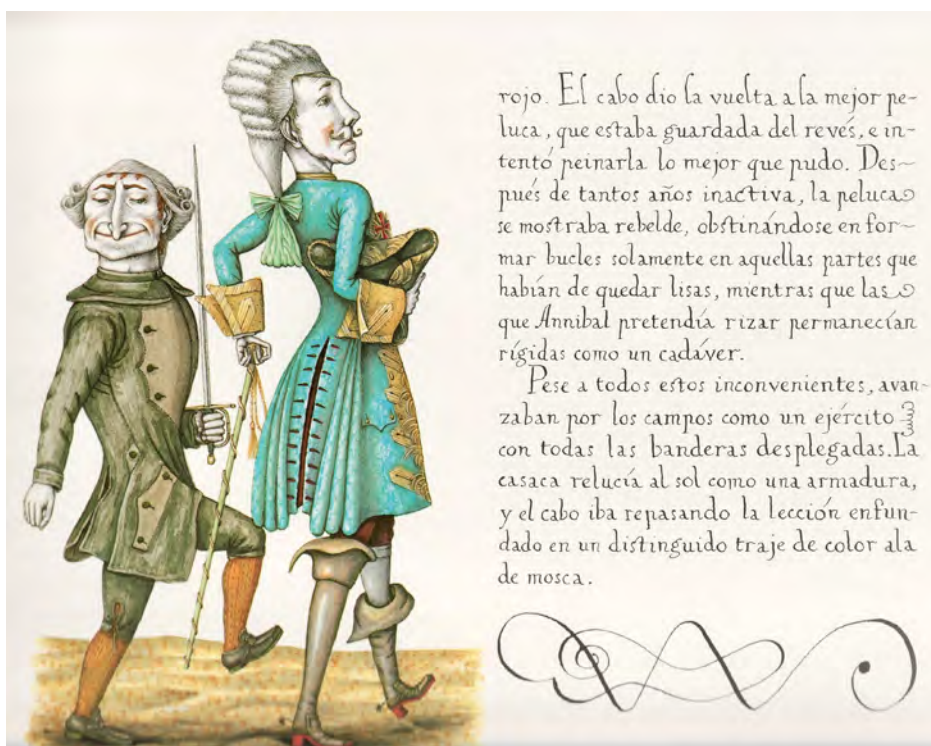 rojo. El cabo dio la vuelta a la mejor pe-
luca, que estaba guardada del revés, e in-
tentó peinarla lo mejor que pudo. Des-
pués de tantos años inactiva, la peluca
se mostraba rebelde, obstinándose en for-
mar bucles solamente en aquellas partes que
habían de quedar lisas, mientras que las
que Annibal pretendía rizar permanecían
rígidas como un cadáver.
Pese a todos estos inconvenientes, avan-
zaban por los campos como un ejército
con todas las banderas desplegadas. La
casaca relucía al sol como una armadura,
y el cabo iba repasando la lección enfun-
dado en un distinguido traje de color ala
de mosca.